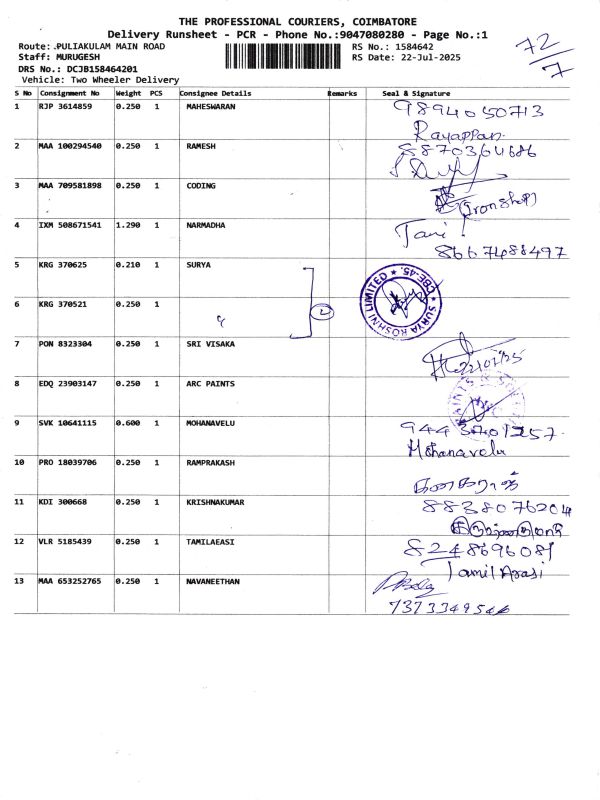 THE PROFESSIONAL COURIERS, COIMBATORE
Delivery Runsheet - PCR - Phone No.:9047080280 - Page No.:1
Route: PULIAKULAM MAIN ROAD
RS No.: 1584642
Staff: MURUGESH
RS Date: 22-Jul-2025
DRS No.: DCJB158464201
Vehicle: Two Wheeler Delivery
72/7
S No Consignment No Weight PCS Consignee Details Remarks Seal & Signature
1 RJP 3614859 0.250 1 MAHESWARAN 9894050713
Rayappan
2 MAA 100294540 0.250 1 RAMESH 8870364686
3 MAA 709581898 0.250 1 CODING
(Iron shop)
4 IXM 508671541 1.290 1 NARMADHA Jani
8667488497
5 KRG 370625 0.210 1 SURYA
SURYA ROSHNI LIMITED ★ CBE-45. ★
6 KRG 370521 0.250 1 " 2
7 PON 8323304 0.250 1 SRI VISAKA
22/07/25
8 EDQ 23903147 0.250 1 ARC PAINTS
9 SVK 10641115 0.600 1 MOHANAVELU 944
Mohanavelu
10 PRO 18039706 0.250 1 RAMPRAKASH
கனகராஜ்
11 KDI 300668 0.250 1 KRISHNAKUMAR 8838076204
12 VLR 5185439 0.250 1 TAMILAEASI 8248696081
Tamil Arasi
13 MAA 653252765 0.250 1 NAVANEETHAN
7373349546